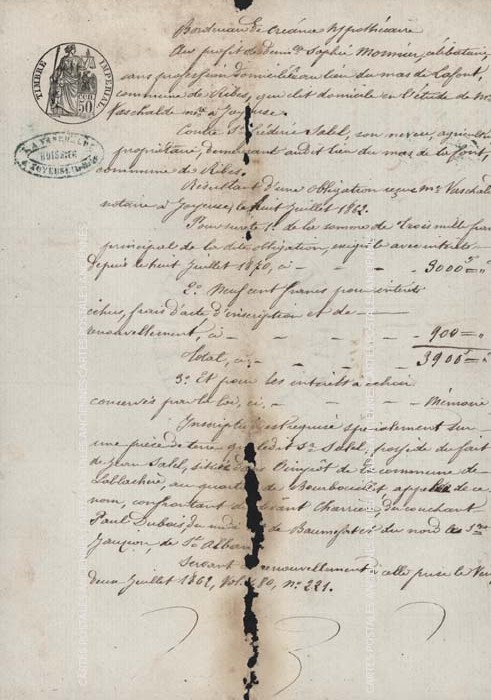 TIMBRE IMPERIAL
50
Bordereau de Créance hypothécaire
Au profit de Demlle Sophie Monnier, célibataire,
sans profession domiciliée au lieu du mas de Lafont,
commune de Ribes, qui élit domicile en l'étude de Me
Vaschalde nore à Joyeuse.
Contre Sr Frédéric Satel, son neveu, agriculteur
propriétaire, demeurant audit lieu du mas de la font,
HUISSIER
commune de Ribes.
Résultant d'une obligation reçue Me Vaschalde
notaire à Joyeuse, le huit Juillet 1862.
Pour sureté 1° de la somme de trois mille francs
principal de la dite obligation, exigible avec intérêts
depuis le huit Juillet 1870, ci - - - - 3000f = "
2° Neuf cent francs pour intérêts
échus, frais d'acte d'inscription et de
renouvellement, ci - - - - 900 = "
Total, ci - - - 3900f = "
3° Et pour les intérêts à échoir
conservés par la loi, ci - - - Mémoire
Inscription est requise spécialement sur
une pièce de terre que ledit Sr Satel, possède du fait
de Jean Satel, située dans l'impôt de la commune de
Lablachère, au quartier de et appelée de ce
nom, confrontant du levant Charrière, du couchant
Paul Dubois, du midi de du nord les
Jaujon, de St Alban
Servant renouvellement à celle prise le Vingt
deux Juillet 1862, Vol. 80, No. 221.